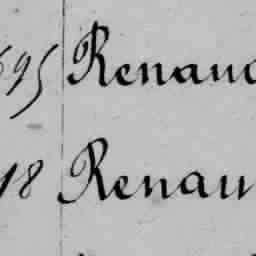 695 Renaud
18 Renau